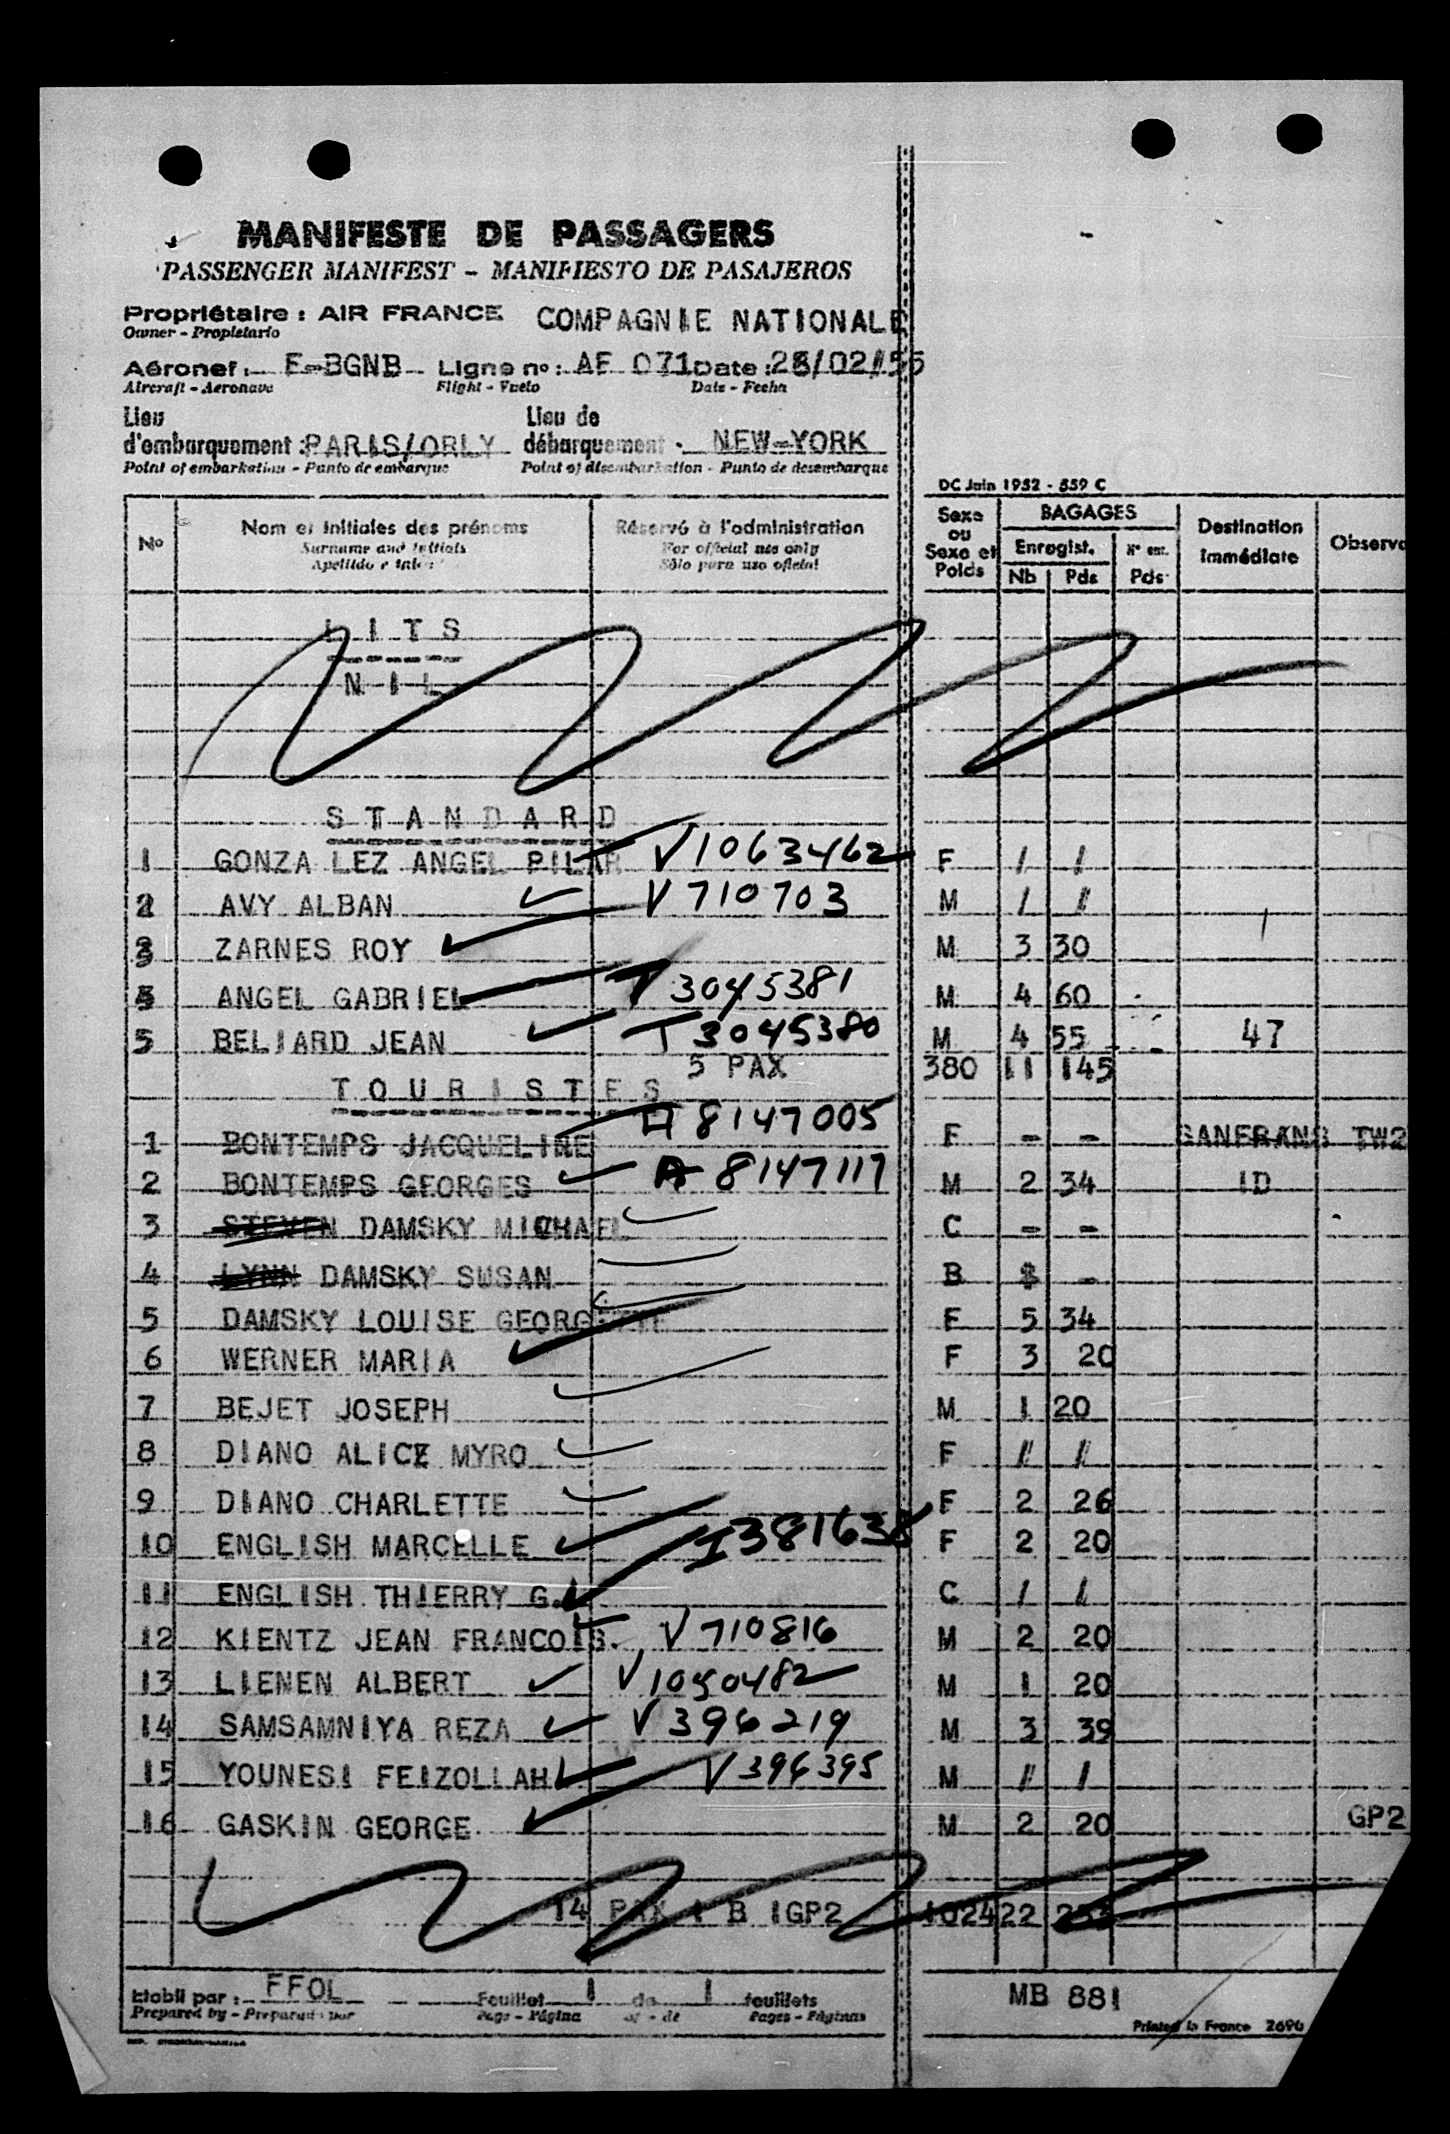 MANIFESTE DE PASSAGERS
PASSENGER MANIFEST - MANIFIESTO DE PASAJEROS
Propriétaire : AIR FRANCE COMPAGNIE NATIONALE
Owner - Propietario
Aéronef : F-BGNB Ligne no : AF 071 Date : 28/02/55
Aircraft - Aeronave Flight - Vuelo Date - Fecha
Lieu d'embarquement : PARIS/ORLY Lieu de débarquement : NEW-YORK
Point of embarkation - Punto de embarque Point of disembarkation - Punto de desembarque
DC Juin 1952 - 559 C
No Nom et initiales des prénoms Réservé à l'administration Sexe ou Sexe et Poids BAGAGES Enregist. Nb Pds N° ent. Pds Destination immédiate Observa
Surname and initials For official use only
Apellido e inic. Sólo para uso oficial
L I T S
N I L
S T A N D A R D
1 GONZA LEZ ANGEL PILAR V1063462 F / /
2 AVY ALBAN V710703 M / //
3 ZARNES ROY M 3 30
ANGEL GABRIEL T 3045381 M 4 60
5 BELIARD JEAN T 3045380 M 4 55 47
5 PAX 380 11 145
T O U R I S T E S
1 BONTEMPS JACQUELINE A 8147005 F - - SANFRANS TW2
2 BONTEMPS GEORGES A 8147117 M 2 34 ID
3 STEVEN DAMSKY MICHAEL C - -
4 LYNN DAMSKY SUSAN B -
5 DAMSKY LOUISE GEORGETTE F 5 34
6 WERNER MARIA F 3 20
7 BEJET JOSEPH M 1 20
8 DIANO ALICE MYRO F // /
9 DIANO CHARLETTE F 2 26
10 ENGLISH MARCELLE I381638 F 2 20
11 ENGLISH THIERRY G. C / /
12 KIENTZ JEAN FRANCOIS. V710816 M 2 20
13 LIENEN ALBERT V1050482 M 1 20
14 SAMSAMNIYA REZA V396219 M 3 39
15 YOUNESI FEIZOLLAH V396395 M // /
16 GASKIN GEORGE M 2 20 GP2
14 PAX 1 B 1GP2 1024 22
Etabli par : FFOL Feuillet 1 de 1 feuillets MB 881
Prepared by - Preparado por Page - Página of - de Pages - Páginas
Printed in France 2690